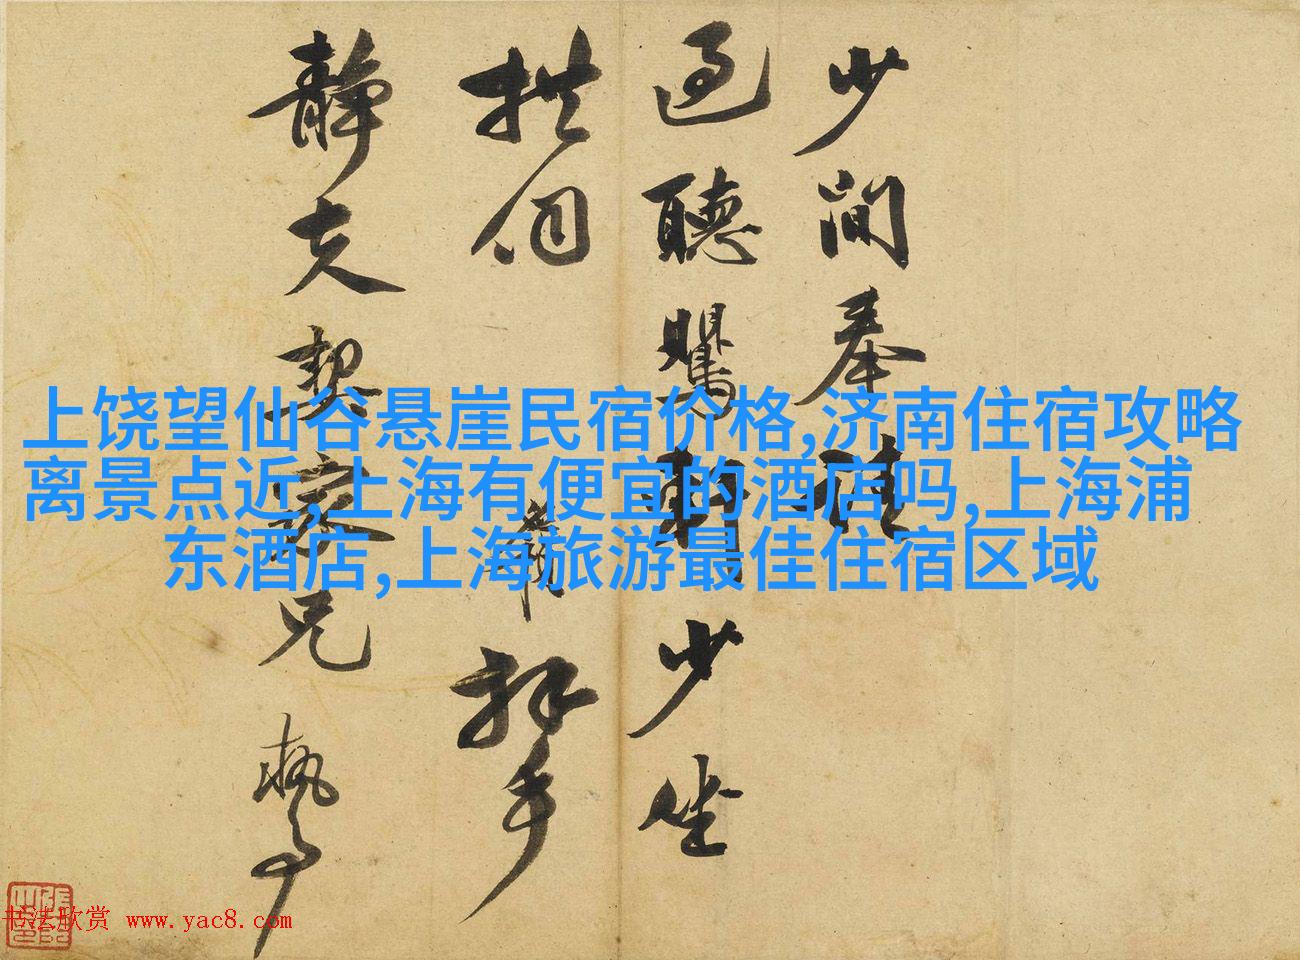 少間奉請
過聽鸎軒少坐
拱伺 拜手
靜夫契家兄執事
上饶望仙谷悬崖民宿价格,济南住宿攻略
离景点近,上海有便宜的酒店吗,上海浦
东酒店,上海旅游最佳住宿区域
书法欣赏 www.yac8.com